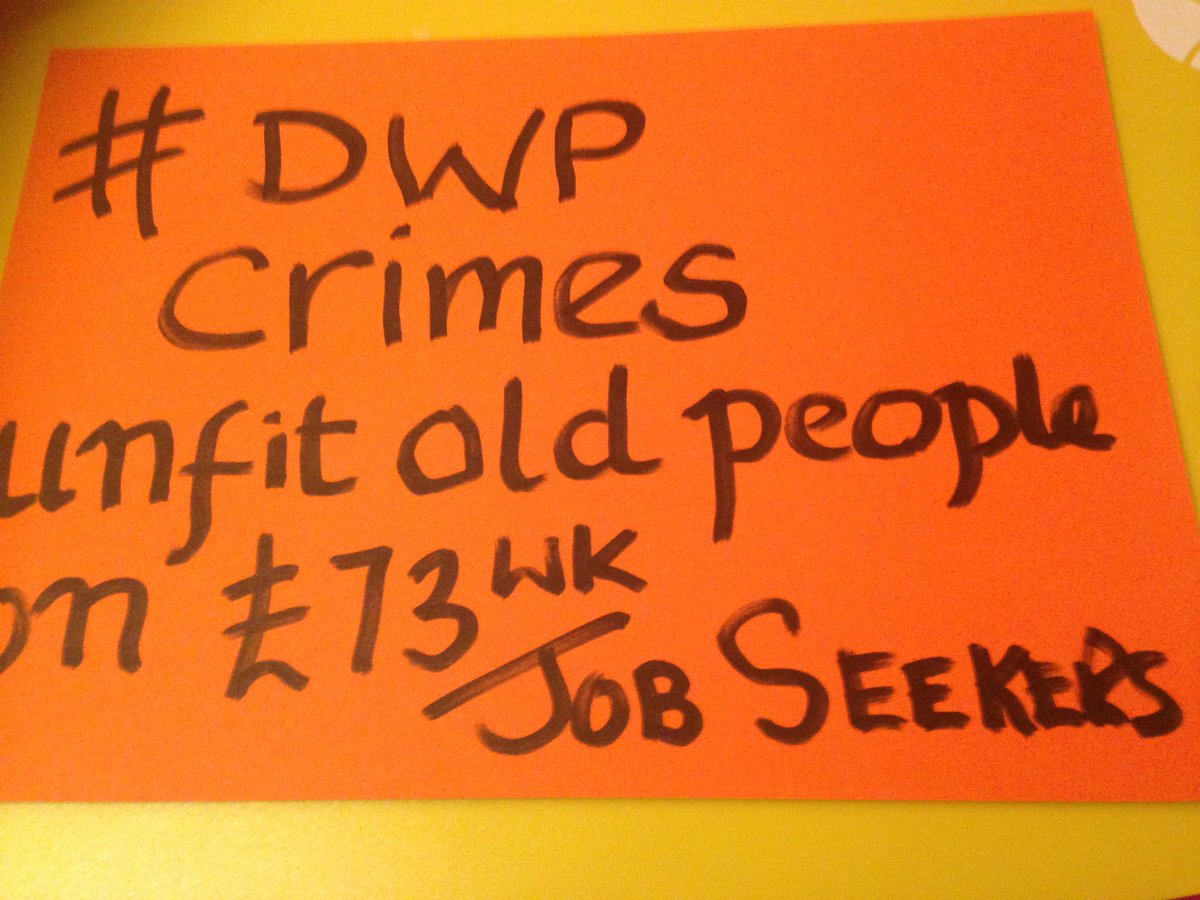 # DWP
Crimes
unfit old people
on £73 WK
JOB SEEKERS